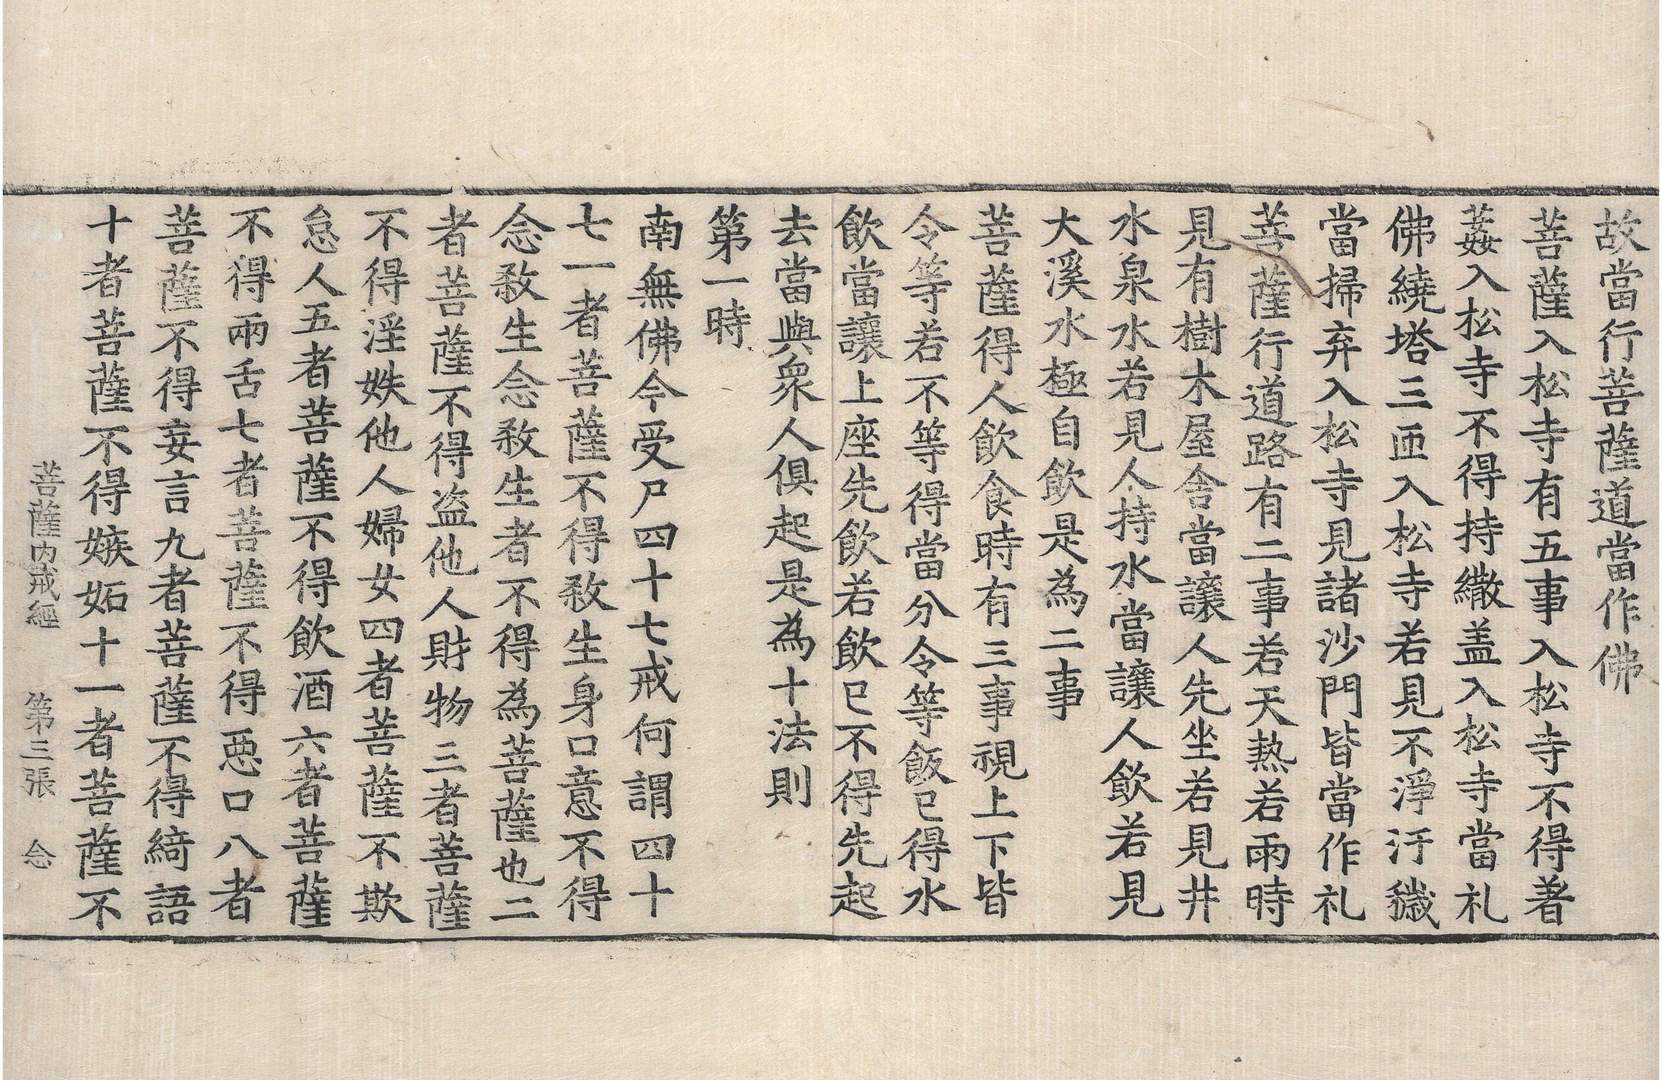 故當行菩薩道當作佛
菩薩入松寺有五事入松寺不得著
䓸入松寺不得持繖盖入松寺當礼
佛繞塔三匝入松寺若見不淨汙穢
當掃弃入松寺見諸沙門皆當作礼
菩薩行道路有二事若天熱若雨時
見有樹木屋舍當讓人先坐若見井
水泉水若見人持水當讓人飲若見
大溪水極自飲是為二事
菩薩得人飲食時有三事視上下皆
令等若不等得當分令等飯已得水
飲當讓上座先飲若飲已不得先起
去當與衆人俱起是為十法則
第一時
南無佛今受尸四十七戒何謂四十
七一者菩薩不得敎生身口意不得
念敎生念敎生者不得為菩薩也二
者菩薩不得盗他人財物三者菩薩
不得淫妷他人婦女四者菩薩不欺
怠人五者菩薩不得飲酒六者菩薩
不得兩舌七者菩薩不得惡口八者
菩薩不得妄言九者菩薩不得綺語
十者菩薩不得嫉妬十一者菩薩不
菩薩内戒經 第三張 念